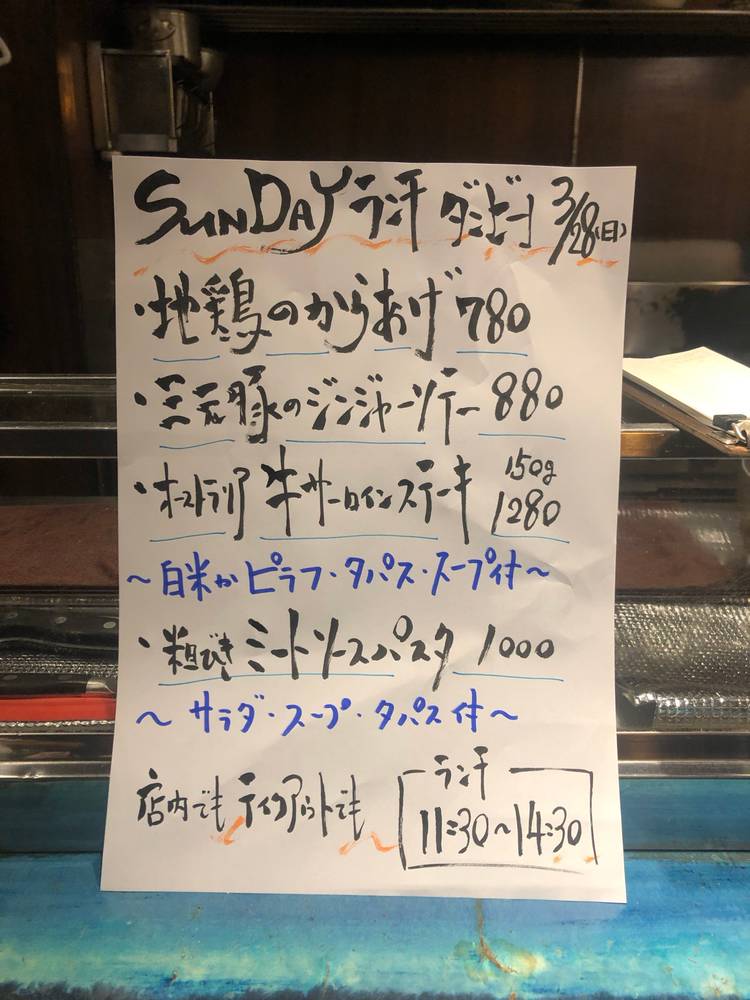 SUNDAY ランチ ダンビーノ 3/28(日)
・地鶏のからあげ 780
・三元豚のジンジャーソテー 880
・オーストラリア牛サーロインステーキ 150g 1280
～白米かピラフ・タパス・スープ付～
・粗びきミートソースパスタ 1000
～サラダ・スープ・タパス付～
店内でもテイクアウトでも
ランチ
11:30～14:30